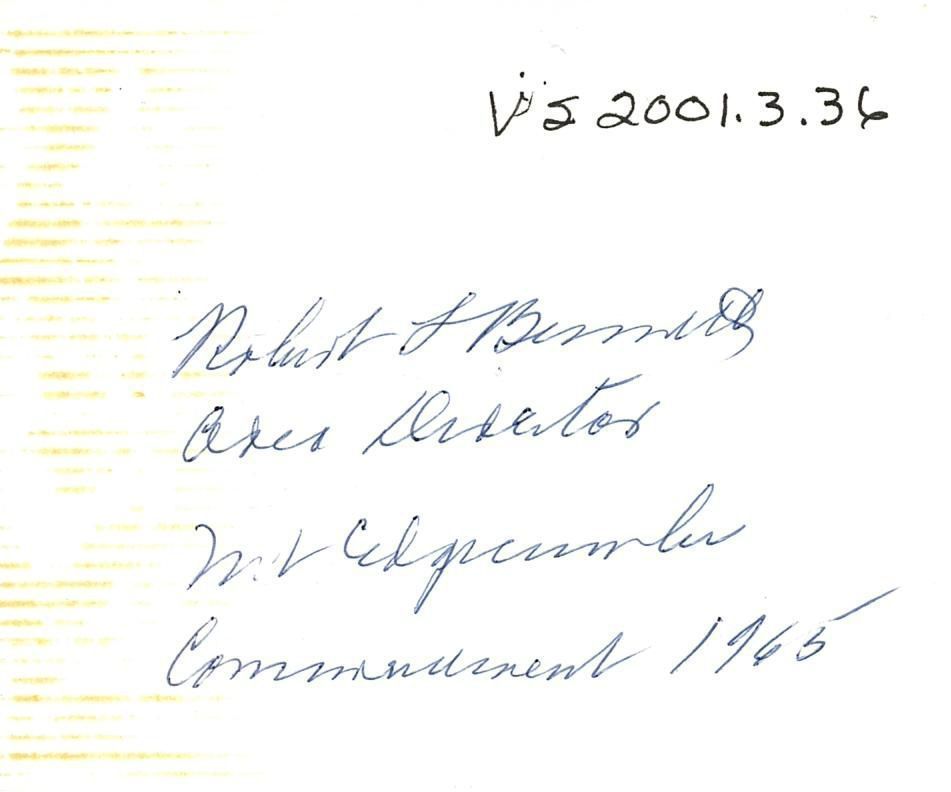 ViS 2001.3.36
Robert L Bennett
Area Director
Mt Edgecumbe
Commencement 1965